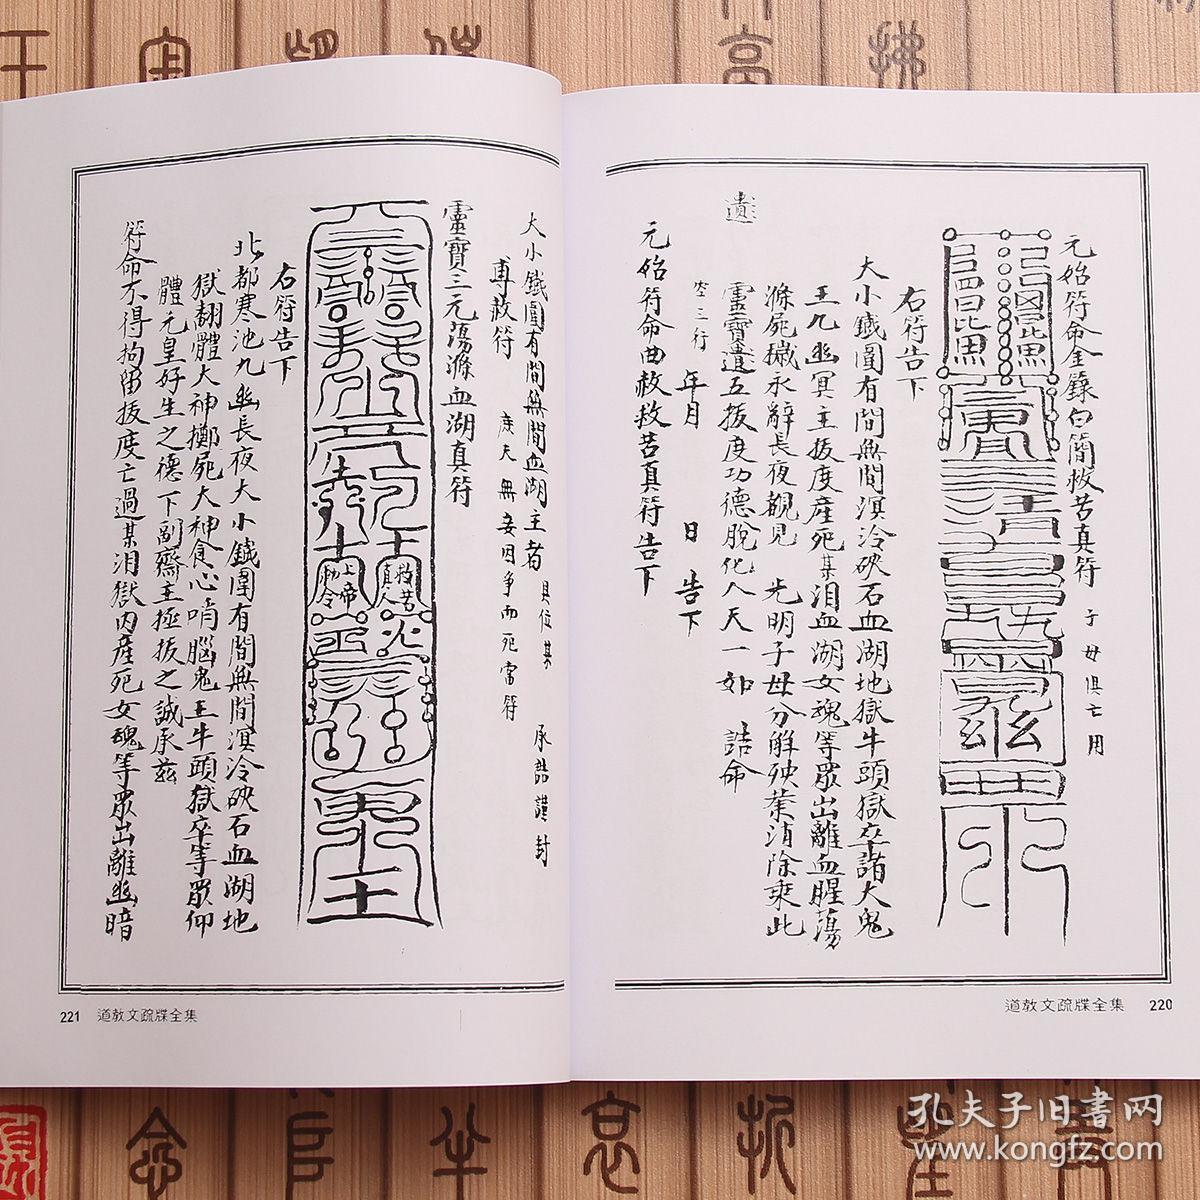 元始符命金籙白簡救苦真符 子母俱亡用
右符告下
大小鐵圍有間無間溟泠硤石血湖地獄牛頭獄卒諸大鬼
王九幽冥主拔度產死某泪血湖女魂等眾出離血腥蕩
滌屍穢永辭長夜覩見 光明子母分解殃葉消除乘此
靈寶遺五拔度功德脫化人天一如 誥命
空三行 年月 日 告下
遺
元始符命曲赦救苦真符告下
道教文疏牒全集 220
大小鐵圍有間無間血湖主者 具位某 承誥謹封
專赦符 度夭無妄因爭而死當符
靈寶三元蕩滌血湖真符
救苦真人
上帝勅令
右符告下
北都寒池九幽長夜大小鐵圍有間無間溟泠硤石血湖地
獄翻體大神擲屍大神食心啃腦鬼王牛頭獄卒等眾仰
體元皇好生之德下副齋主拯拔之誠承茲
符命不得拘留拔度亡過某泪獄內產死女魂等眾出離幽暗
221 道教文疏牒全集
孔夫子旧书网
www.kongfz.com